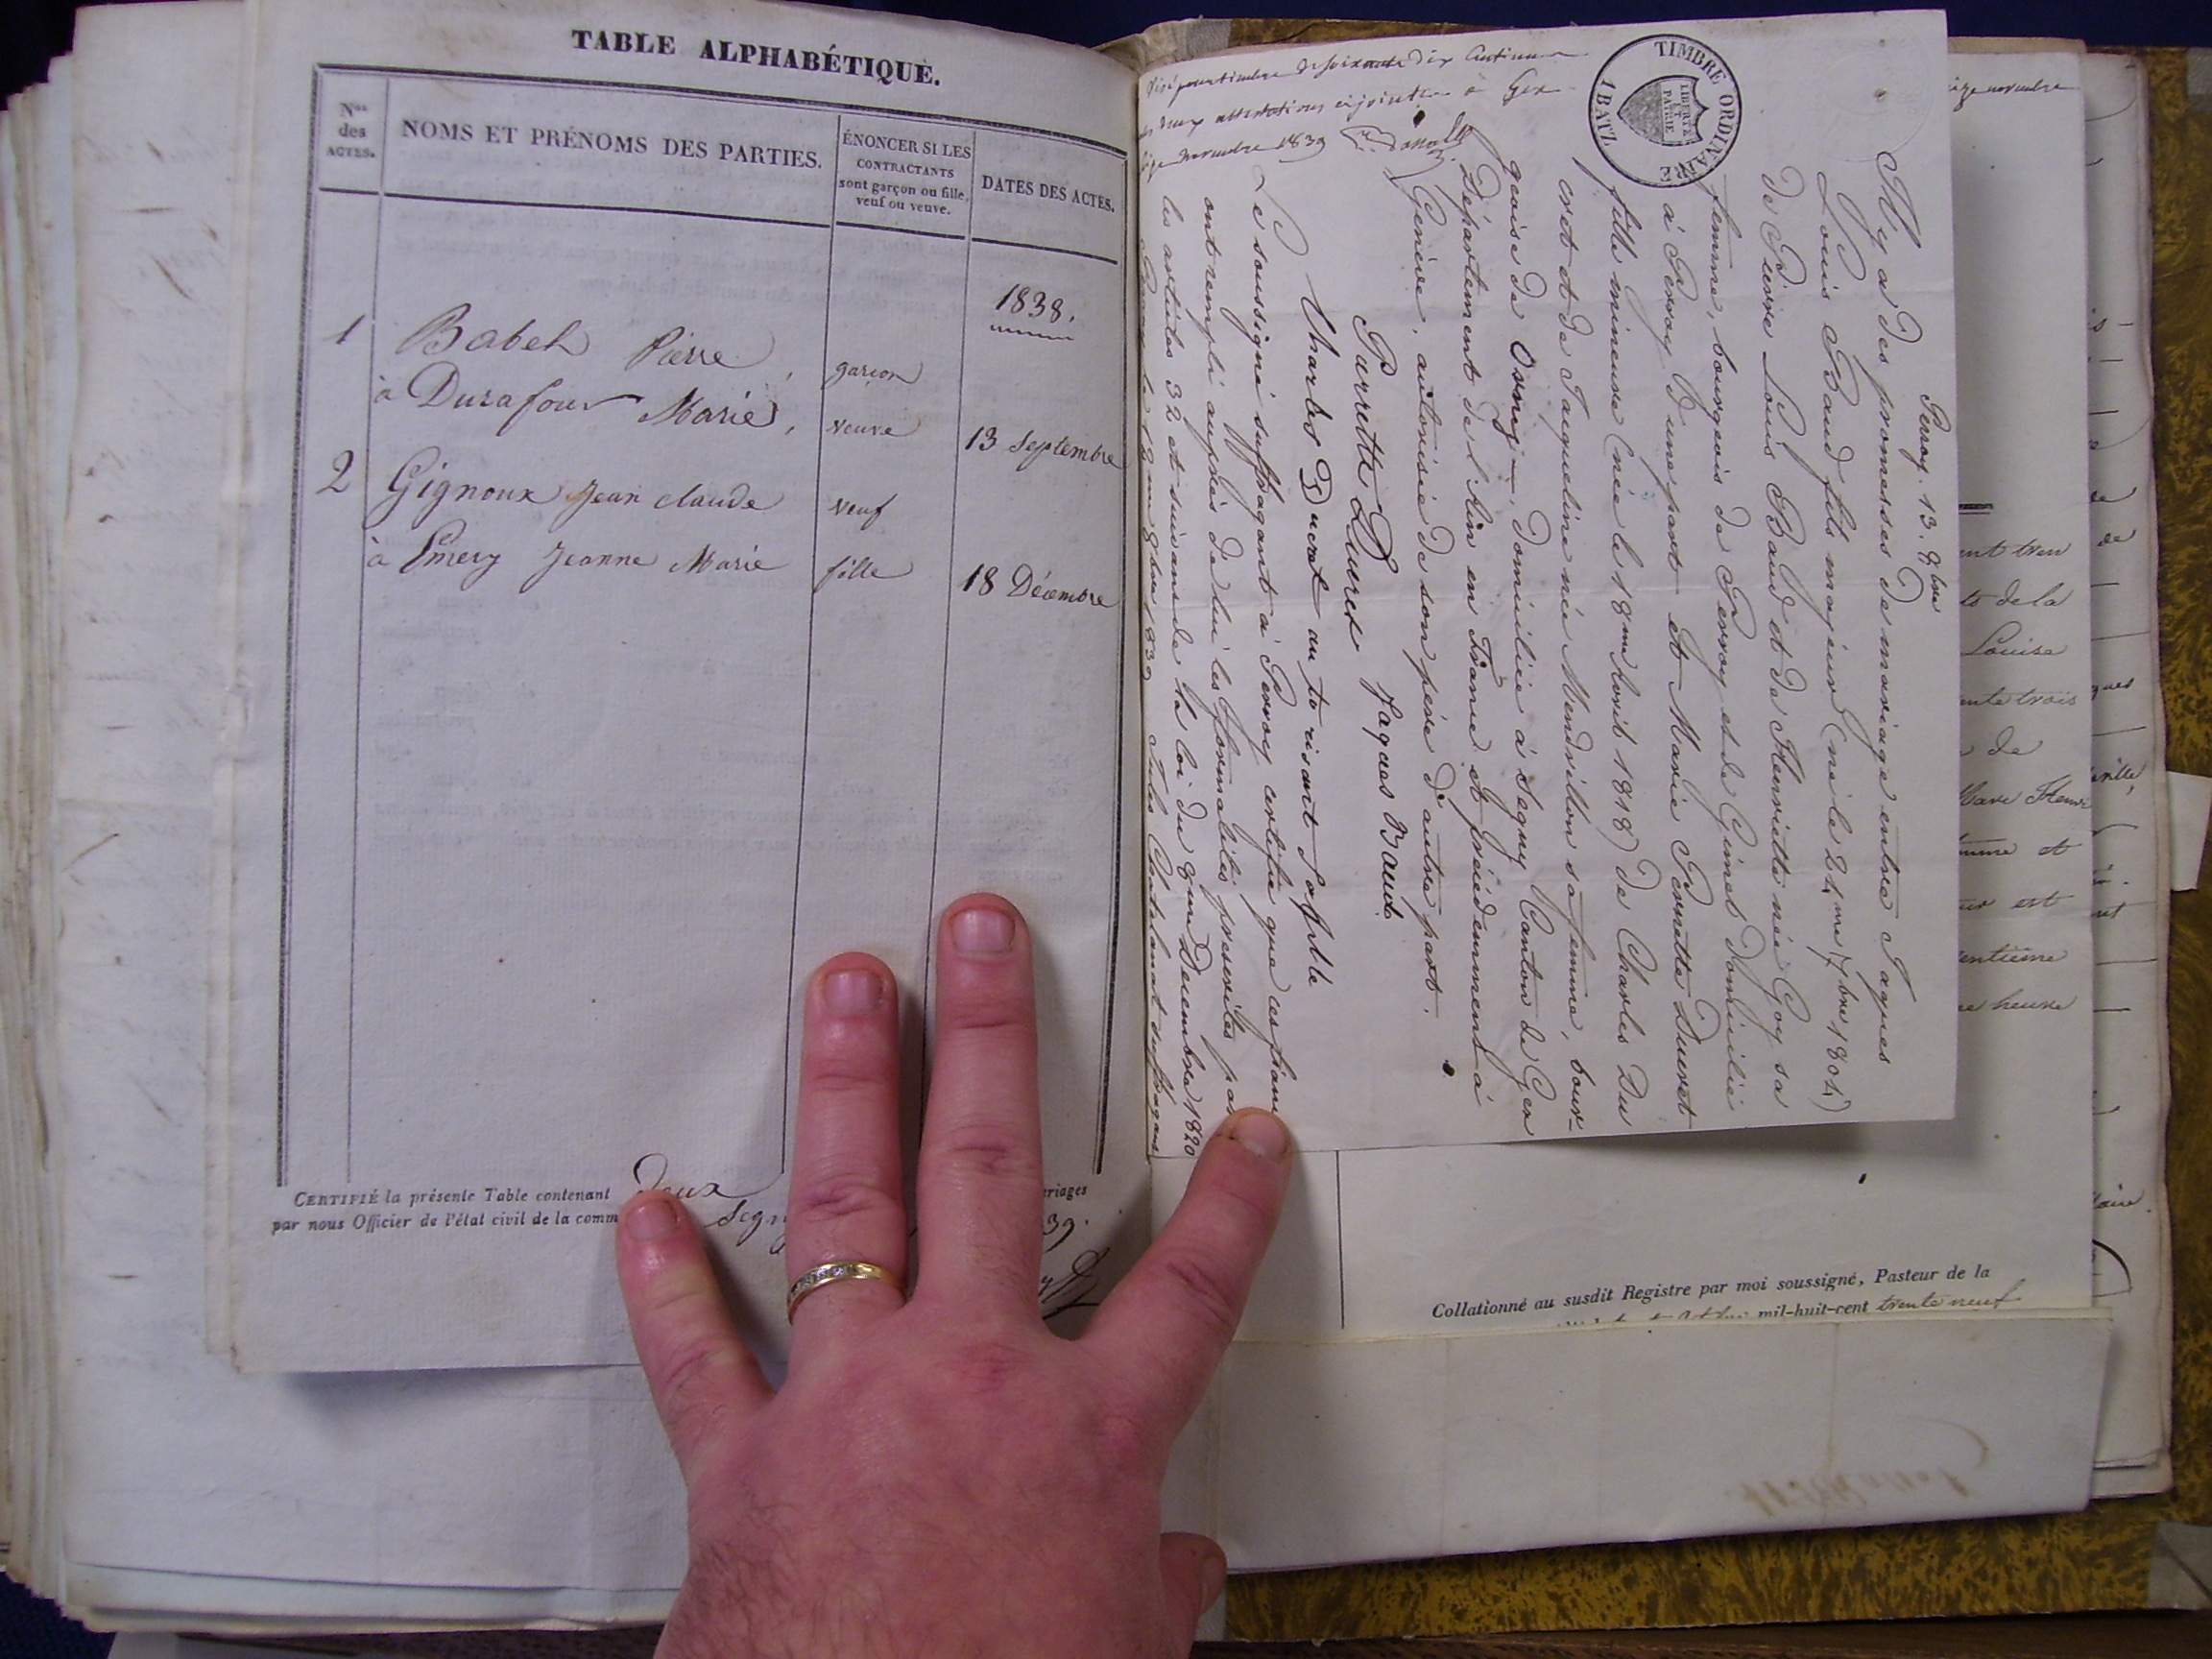 TABLE ALPHABÉTIQUE.
Nos des ACTES.
NOMS ET PRÉNOMS DES PARTIES.
ÉNONCER SI LES
CONTRACTANTS
sont garçon ou fille,
veuf ou veuve.
DATES DES ACTES.
1838.
1 Babel Pierre, garçon
à Durafour Marie, veuve 13 Septembre
2 Gignoux Jean claude veuf
à Emery Jeanne Marie fille 18 Décembre
CERTIFIÉ la présente Table contenant Deux riages
par nous Officier de l'état civil de la comm Segn 39.
Visé pour timbre de soixante dix Centimes
deux attestations cijointes à Gex
novembre 1839
TIMBRE ORDINAIRE
1 BATZ
LIBERTÉ
ET
PATRIE
Perroy. 13. 9bre
Il y a des promesses de mariage entre Jaques
Louis Baud fils majeur (né le 24me 7bre 1804)
de Pierre Louis Baud et de Henriette née Goy sa
femme, bourgeois de Perroy et de Gimel domicilié
à Perroy d'une part et Marie Perrette Ducret
fille mineure (née le 18me Avril 1818) de Charles Du
cret et de Jaqueline née Mendrillon sa femme, bour-
geoise de Ornex, domiciliée à Segny Canton de Gex
Département de l'Ain en France et précédemment à
Genève, autorisée de son père d'autre part.
Parrette Ducret Jaques Baud
Charles Ducret au to risant sa fille
Le soussigné suffragant à Perroy certifie que ces fian
ont rempli auprès de lui les formalités prescrites par
les articles 32 et suivans de la loi du Décembre 1820
le 13me 9bre 1839 Jules suffragant
ize novembre
ent tren
to de la
Louise
ente trois
de
Marc Henri
mme et
ur est
entième
heure
de
ques
Collationné au susdit Registre par moi soussigné, Pasteur de la
mil-huit-cent trente neuf